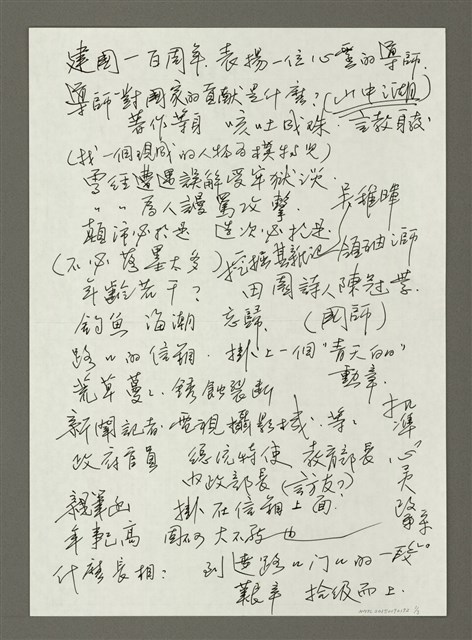 建國一百周年. 表揚一位心靈的導師.
導師對國家的貢獻是什麼? (山中湖)
著作等身 咳吐成珠. 言教身教
(找一個現成的人物為模特兒)
曾經遭遇誤解受牢獄災
〃 〃 為人謾罵攻擊. 吳稚暉
顛沛必於是 造次必於是.
(不必落墨太多) 挖掘其
年齡若干? 田園詩人陳冠學.
釣魚 海潮 忘歸. (國師)
路口的信箱. 掛上一個"青天白日"
荒草蔓蔓. 銹蝕裂斷 勳章.
新聞記者. 電視攝影機. 等等
政府官員 總統特使 教育部長
內政部長 (言友?)
親筆函 掛在信箱上面?
心靈改革
年事已高 固不大不敬也
什麼長相: 到達路口门口的一
艱辛 拾級而上.